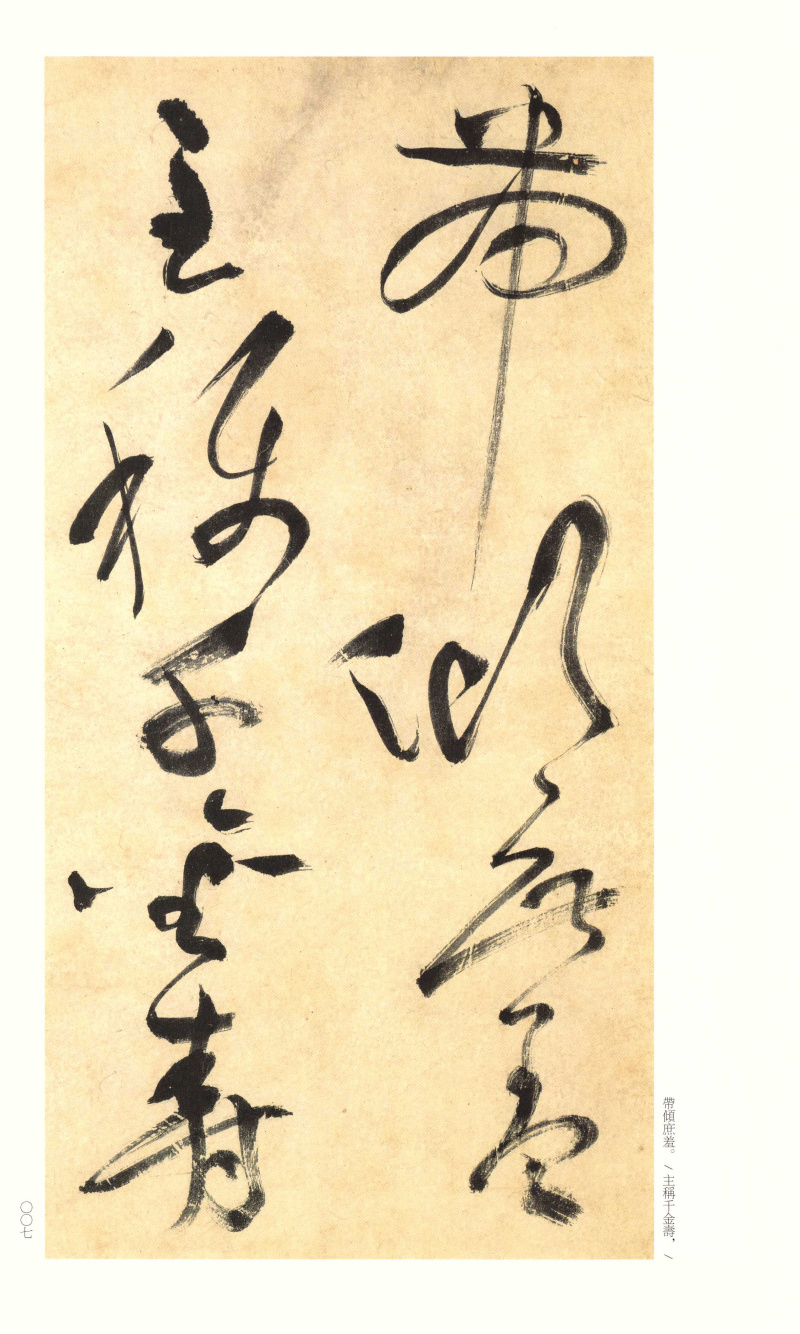 帶傾庶羞
主稱千金壽
帶傾庶羞。/主稱千金壽，/
〇〇七